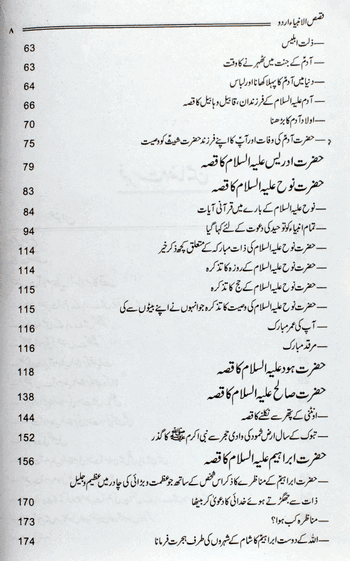 قصص الانبیاء اردو
۸
—ذلت ابلیس 63
—آدمؑ کے جنت میں ٹھہرنے کا وقت 63
—دنیا میں آدمؑ کا پہلا کھانا اور لباس 64
—آدم علیہ السلام کے فرزندان، قابیل و ہابیل کا قصہ 66
—اولاد آدمؑ کا بڑھنا 70
—حضرت آدمؑ کی وفات اور آپؑ کا اپنے فرزند حضرت شیثؑ کو وصیت 75
حضرت ادریس علیہ السلام کا قصہ 79
حضرت نوح علیہ السلام کا قصہ 83
—نوح علیہ السلام کے بارے میں قرآنی آیات 84
—تمام انبیاء کو توحید کی دعوت کے لئے کہا گیا 94
—حضرت نوح علیہ السلام کی ذات مبارکہ کے متعلق کچھ ذکر خیر 114
—حضرت نوح علیہ السلام کے روزہ کا تذکرہ 114
—حضرت نوح علیہ السلام کے حج کا تذکرہ 115
—حضرت نوح علیہ السلام کی وصیت کا تذکرہ جو انہوں نے اپنے بیٹوں سے کی 115
—آپ کی عمر مبارک 116
—مرقد مبارک 116
حضرت ہود علیہ السلام کا قصہ 118
حضرت صالح علیہ السلام کا قصہ 138
—اونٹنی کے پتھر سے نکلنے کا قصہ 144
—تبوک کے سال ارض ثمود کی وادی حجر سے نبی اکرم ﷺ کا گذر 152
حضرت ابراہیم علیہ السلام کا قصہ 156
—حضرت ابراہیمؑ کے مناظرے کا ذکر اس شخص کے ساتھ جو عظمت و بڑائی کی چادر میں عظیم و جلیل
ذات سے جھگڑتے ہوئے خدائی کا دعویٰ کر بیٹھا 170
—مناظرہ کب ہوا؟ 173
—اللہ کے دوست ابراہیمؑ کا شام کے شہروں کی طرف ہجرت فرمانا 174